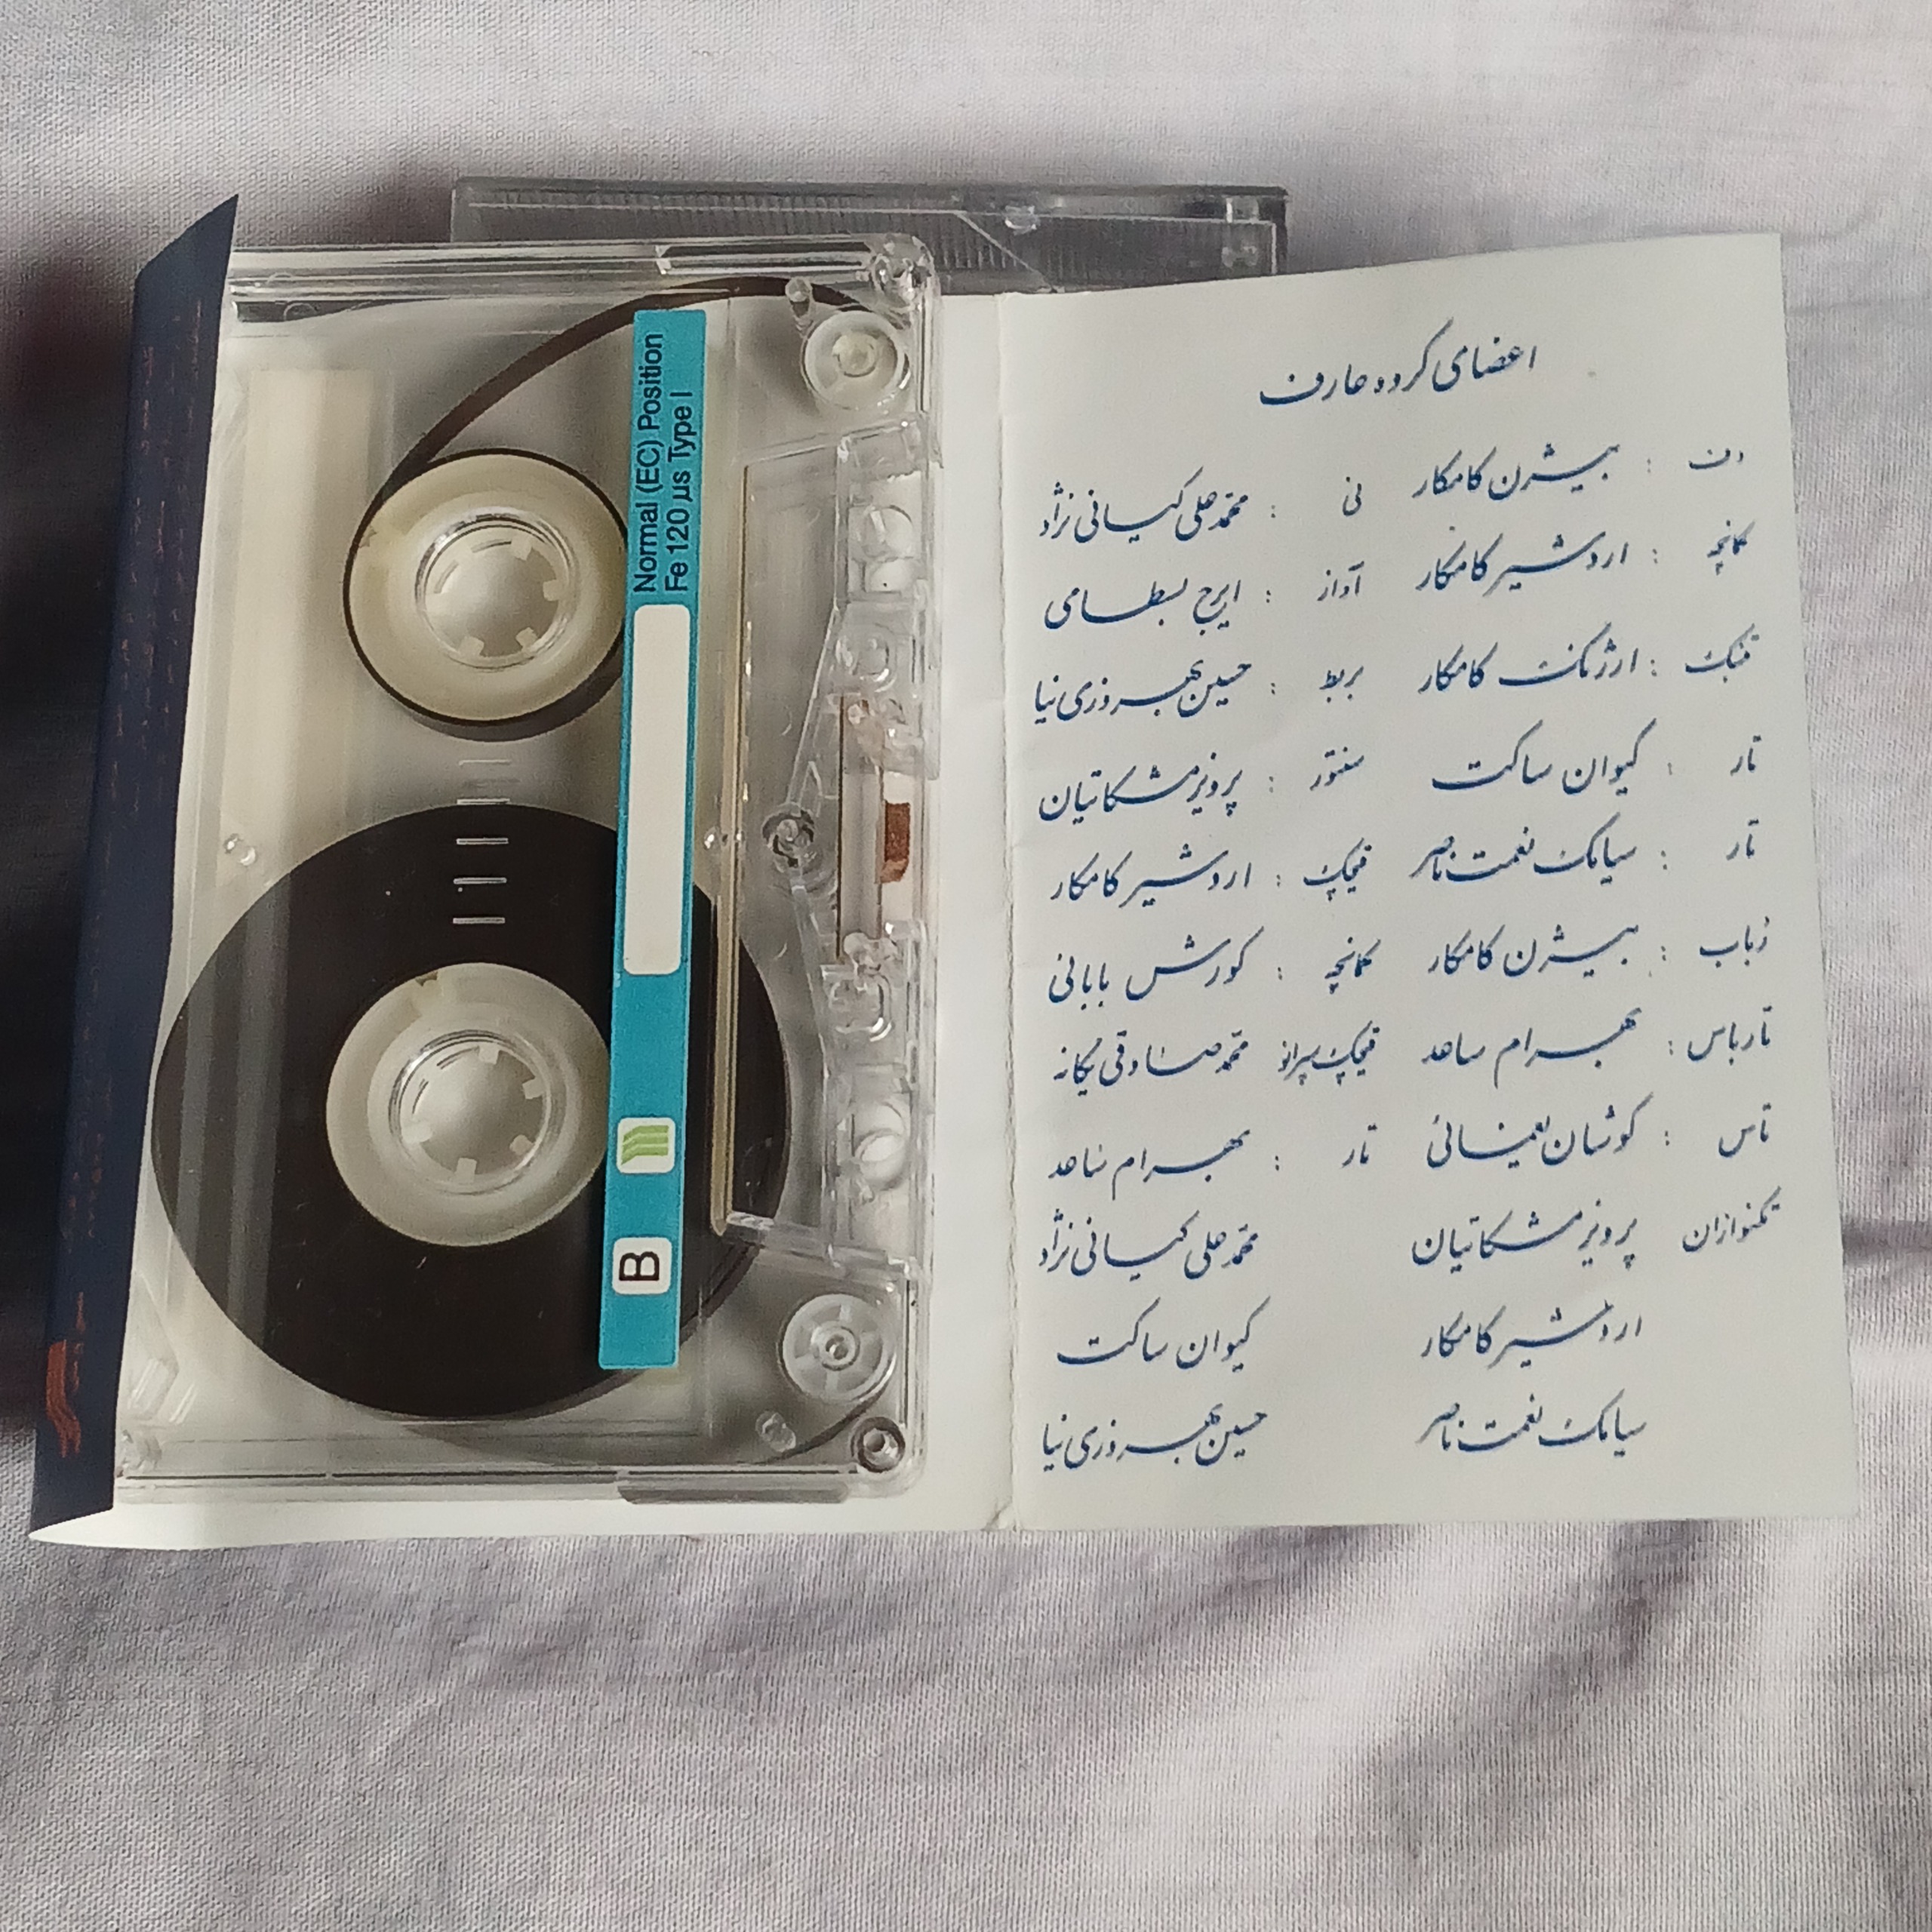 Normal (EC) Position
Fe 120 µs Type I
B
اعضای گروه عارف
دف : بیژن کامکار نی : محمدعلی کیانی نژاد
کمانچه : اردشیر کامکار آواز : ایرج بسطامی
تنبک : ارژنگ کامکار بربط : حسین بهروزی نیا
تار : کیوان ساکت سنتور : پرویز مشکاتیان
تار : سیامک نعمت ناصر قیچک : اردشیر کامکار
رباب : بیژن کامکار کمانچه : کورش بابائی
تارباس : بهرام ساعد قیچک سپرانو محمد صادقی یگانه
تاس : کوشان یغمائی تار : بهرام ساعد
تکنوازان پرویز مشکاتیان محمدعلی کیانی نژاد
اردشیر کامکار کیوان ساکت
سیامک نعمت ناصر حسین بهروزی نیا